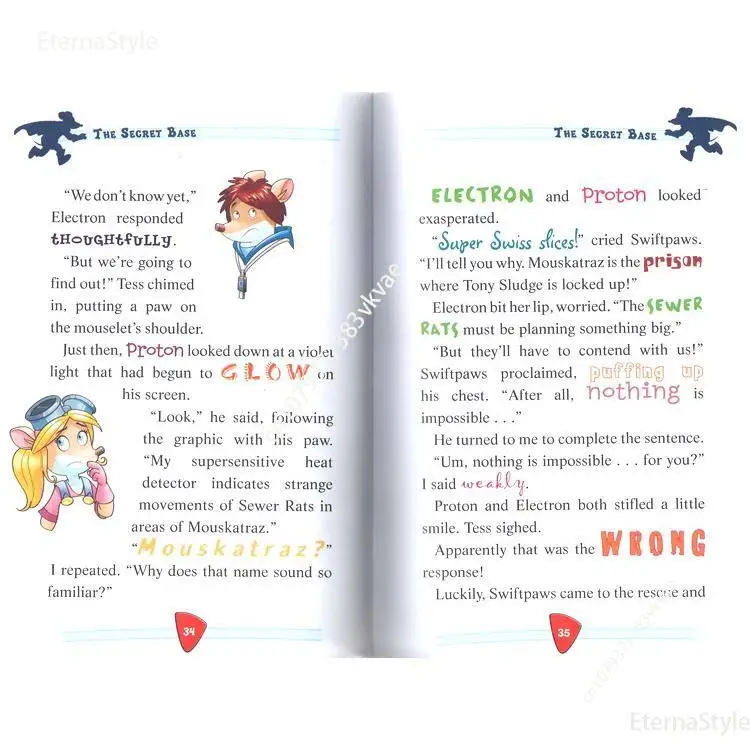 EternaStyle
THE SECRET BASE
"We don't know yet,"
Electron responded
tHOUGHtFULLY.
"But we're going to
find out!" Tess chimed
in, putting a paw on
the mouselet's shoulder.
Just then, Proton looked down at a violet
light that had begun to GLOW on
his screen.
"Look," he said, following
the graphic with his paw.
"My supersensitive heat
detector indicates strange
movements of Sewer Rats in
areas of Mouskatraz."
"Mouskatraz?"
I repeated. "Why does that name sound so
familiar?"
34
THE SECRET BASE
ELECTRON and Proton looked
exasperated.
"Super Swiss slices!" cried Swiftpaws.
"I'll tell you why. Mouskatraz is the prison
where Tony Sludge is locked up!"
Electron bit her lip, worried. "The SEWER
RATS must be planning something big."
"But they'll have to contend with us!"
Swiftpaws proclaimed, puffing up
his chest. "After all, nothing is
impossible . . ."
He turned to me to complete the sentence.
"Um, nothing is impossible . . . for you?"
I said weakly.
Proton and Electron both stifled a little
smile. Tess sighed.
Apparently that was the WRONG
response!
Luckily, Swiftpaws came to the rescue and
35
EternaStyle